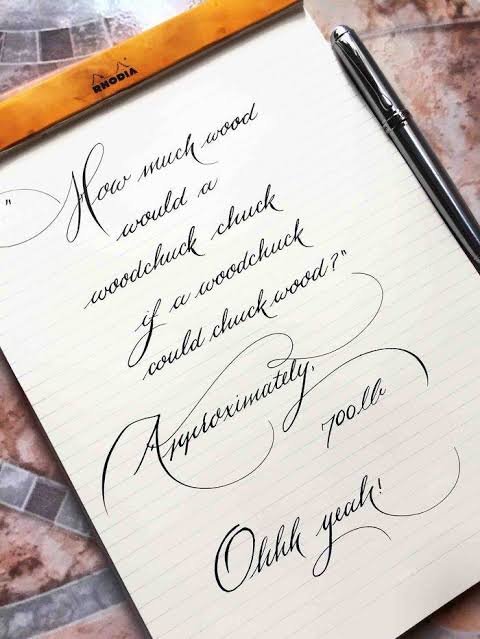 RHODIA
"How much wood
would a
woodchuck chuck
if a woodchuck
could chuck wood?"
Approximately,
700lb
Ohhh yeah!